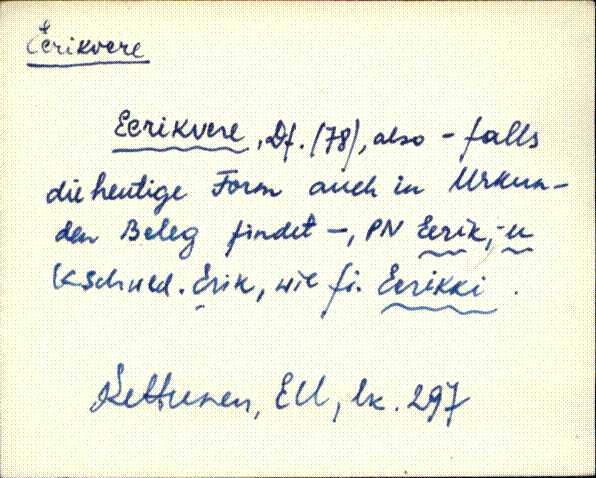 Eerikvere
Eerikvere, Df. (78), also - falls
die heutige Form auch in Urkun-
den Beleg findet -, PN Eerik, -u
< schwed. Erik, wie fi. Eerikki.
Kettunen, EU, lk. 297